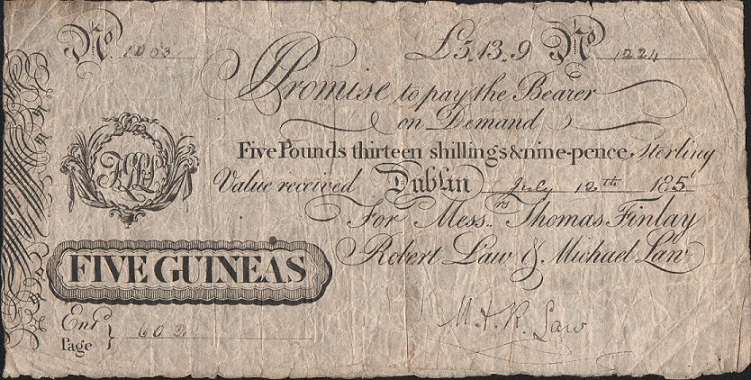 No. 1003 £5,13,9 No. 1224
I Promise to pay the Bearer
on Demand
Five Pounds thirteen shillings & nine-pence Sterling
Value received Dublin July 12th 185
For Messrs. Thomas Finlay
Robert Law & Michael Law
FIVE GUINEAS
Entd
Page } 602
Law